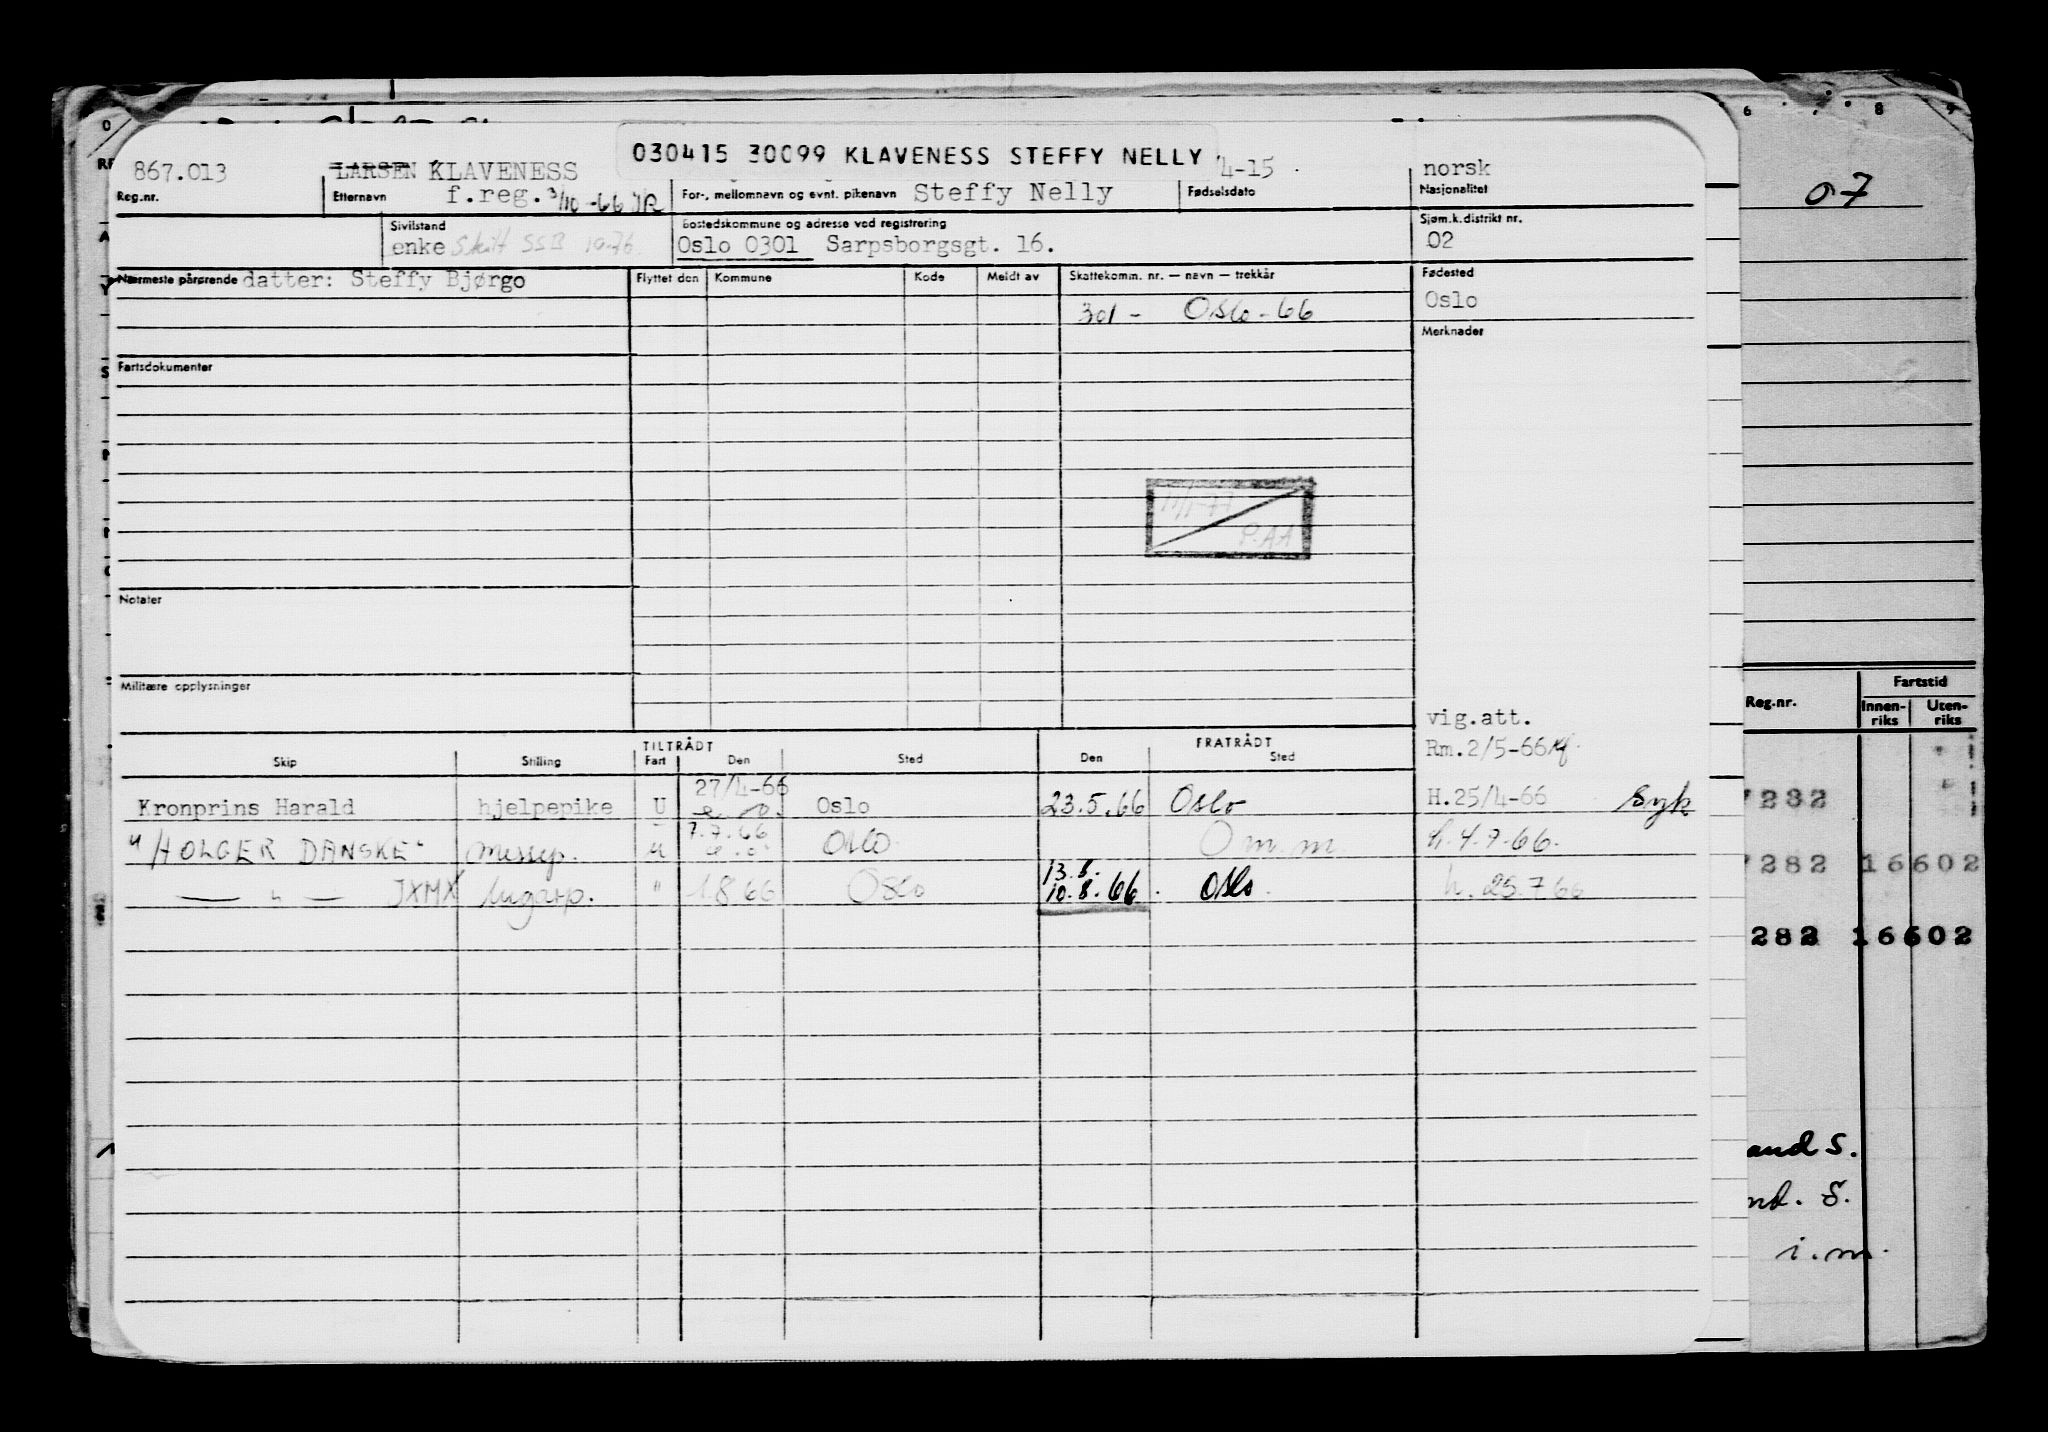 030415 30099 KLAVENESS STEFFY NELLY
867.013 LARSEN KLAVENESS 4-15 norsk
Reg.nr. Etternavn f.reg. 3/10-66 For-, mellomnavn og evnt. pikenavn Steffy Nelly Fødselsdato Nasjonalitet
Sivilstand Bostedskommune og adresse ved registrering Sjøm.k.distrikt nr.
enke SSB 10-76 Oslo 0301 Sarpsborgsgt. 16. 02
Nærmeste pårørende datter: Steffy Bjørgo Flyttet den Kommune Kode Meldt av Skattekomm. nr. — navn — trekkår Fødested
301 - Oslo - 66 Oslo
Merknader
Fartsdokumenter
11/1-77
P.AA
Notater
Militære opplysninger
vig.att.
Rm.2/5-66
TILTRÅDT FRATRÅDT
Skip Stilling Fart Den Sted Den Sted
27/4-66
Kronprins Harald hjelpepike U Oslo 23.5.66 Oslo H.25/4-66 Syk
7.7.66
"HOLGER DANSKE" messep. u Oslo O m.m h.4.7.66.
13.8.
— " — JXMX lugarp. " 1.8.66 Oslo 10.8.66. Oslo. h.25.7.66
07
Fartstid
Reg.nr. Innen-riks Uten-riks
7282
7282 16602
282 16602
and S.
nd. S.
i.m.